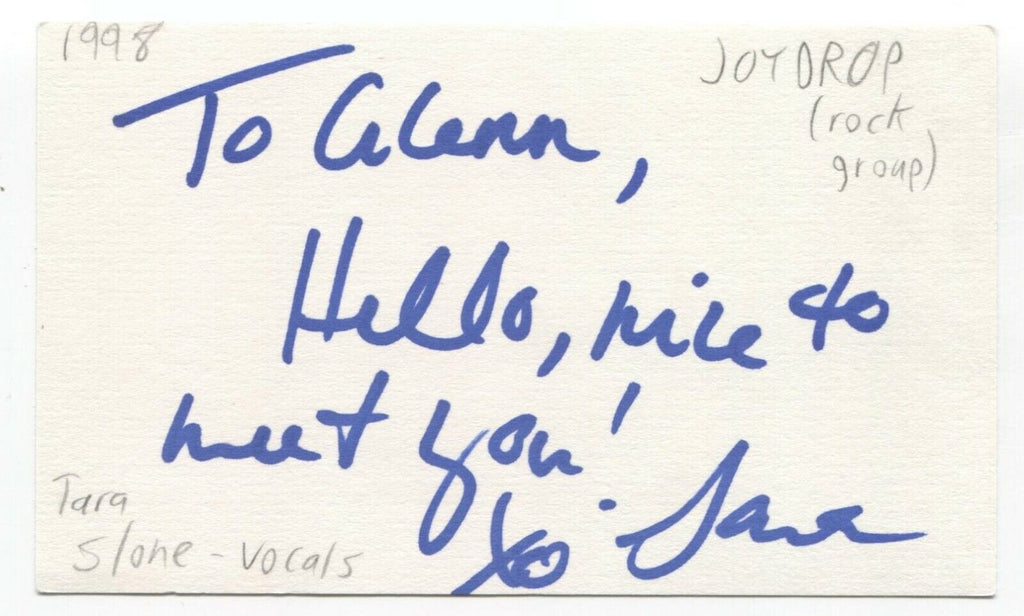 1998
JOYDROP
(rock
group)
To Glenn,
Hello, nice to
meet you!
xo Tara
Tara
Slone - vocals